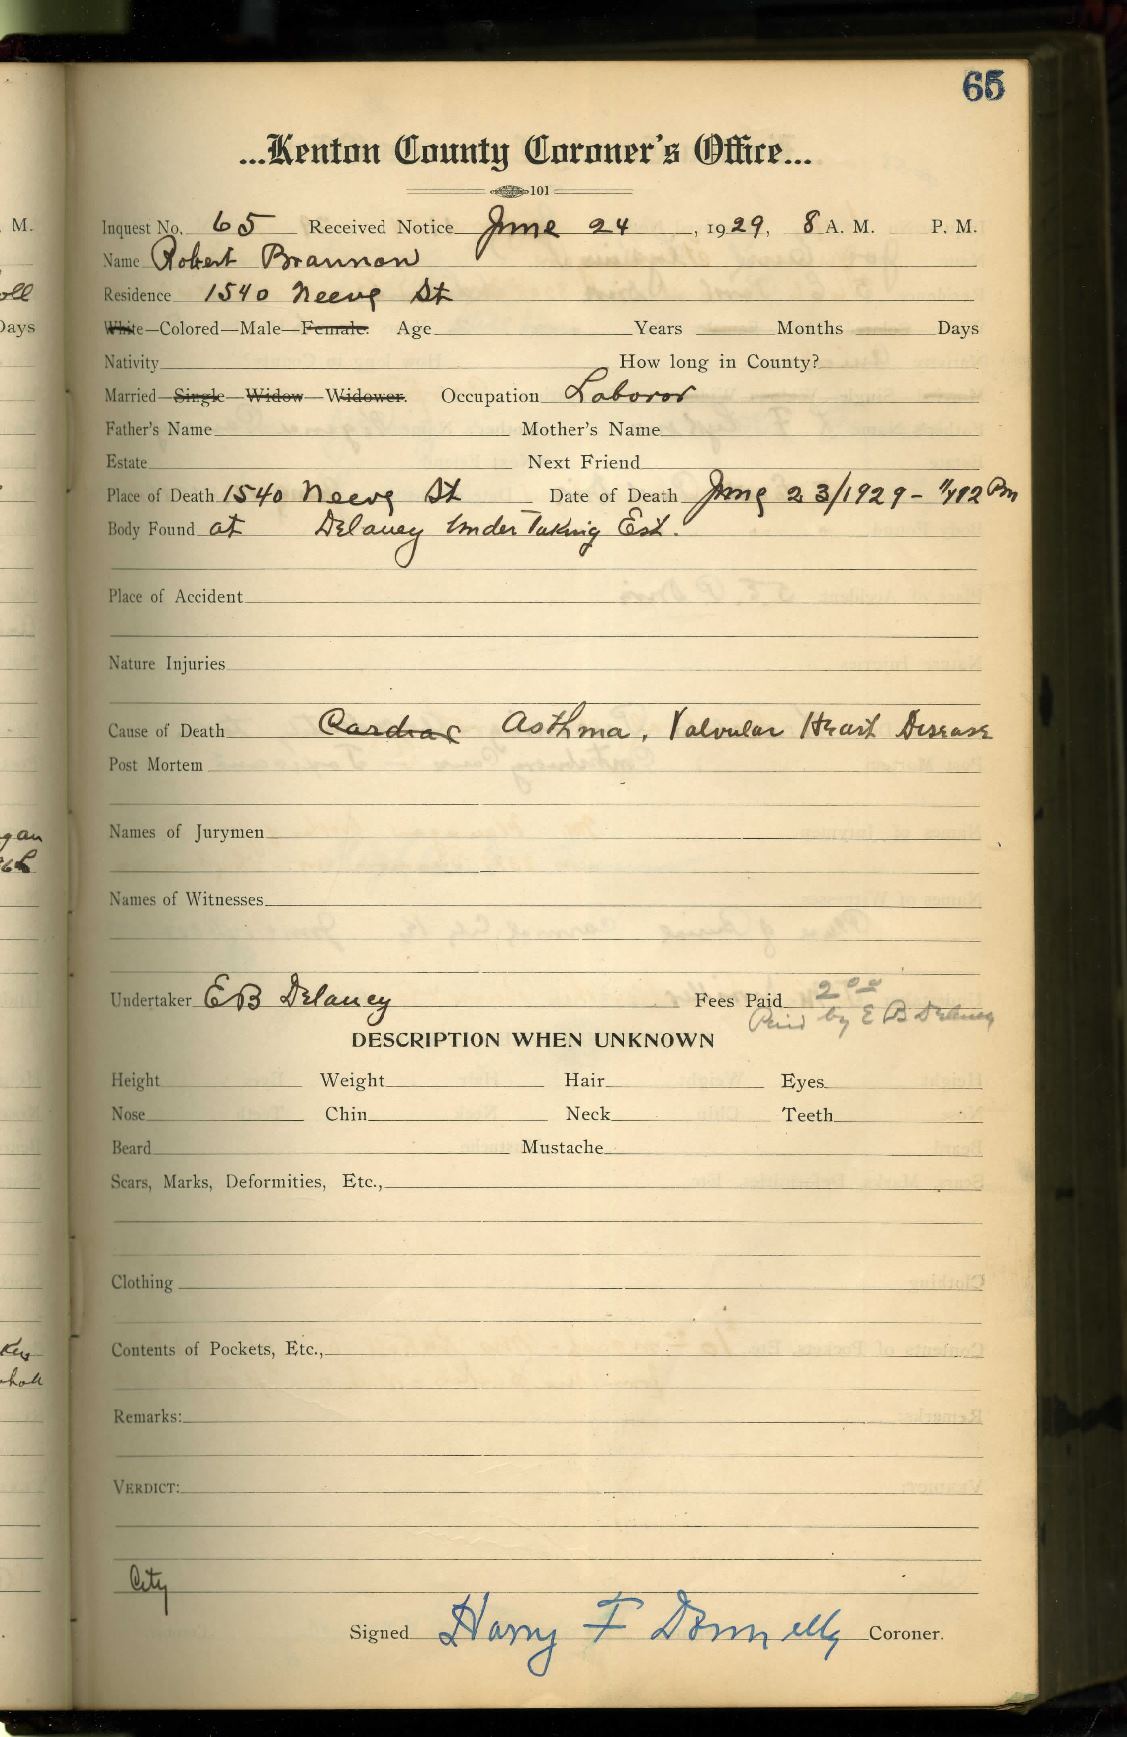 65
...Kenton County Coroner's Office...
101
Inquest No. 65 Received Notice June 24, 1929, 8 A. M. P. M.
Name Robert Brannon
Residence 1540 Neeve St
White—Colored—Male—Female. Age Years Months Days
Nativity How long in County?
Married—Single—Widow—Widower. Occupation Laboror
Father's Name Mother's Name
Estate Next Friend
Place of Death 1540 Neeve St Date of Death June 23/1929 - Pm
Body Found at Delaney UnderTaking Est.
Place of Accident
Nature Injuries
Cause of Death Cardiac Asthma, Valvular Heart Disease
Post Mortem
Names of Jurymen
Names of Witnesses
Undertaker EB Delaney Fees Paid 2 00
Paid by E B Delaney
DESCRIPTION WHEN UNKNOWN
Height Weight Hair Eyes
Nose Chin Neck Teeth
Beard Mustache
Scars, Marks, Deformities, Etc.,
Clothing
Contents of Pockets, Etc.,
Remarks:
VERDICT:
City
Signed Harry F Donnelly Coroner.